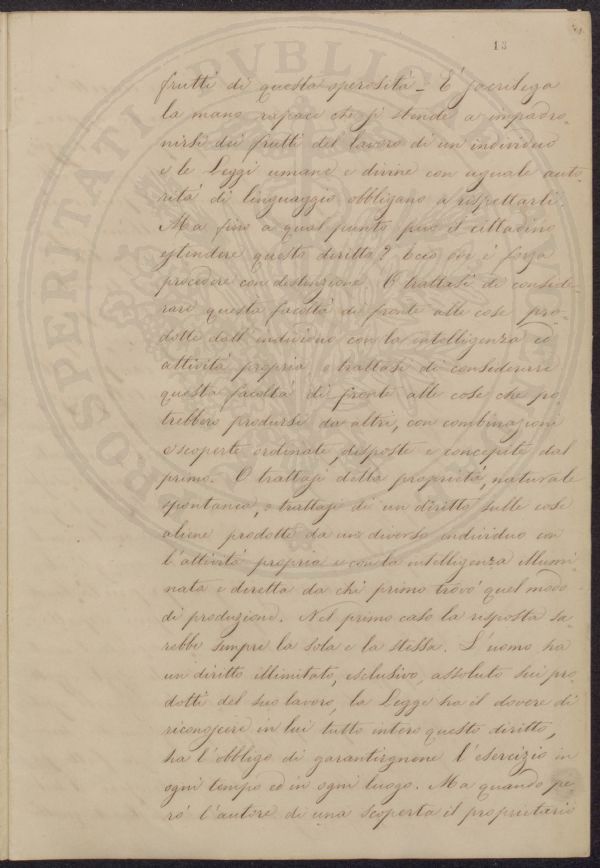 13
frutti di questa operosità – È sacrilega
la mano rapace che si stende a impadro-
nirsi dei frutti del lavoro di un individuo
e le Leggi umane e divine con uguale auto-
rità di linguaggio obbligano a rispettarli.
Ma fino a qual punto può il cittadino
estendere questo diritto? Ecco ove è forza
procedere con distinzione O trattasi di conside-
rare questa facoltà di fronte alle cose pro-
dotte dall'individuo con la intelligenza ed
attività propria o trattasi di considerare
questa facoltà di fronte alle cose che po
trebbero prodursi da altri, con combinazioni
e scoperte ordinate, disposte e concepite dal
primo. O trattasi della proprietà, naturale
spontanea, o trattasi di un diritto sulle cose
aliene prodotte da un diverso individuo con
l'attività propria e con la intelligenza illumi-
nata e diretta da chi primo trovò quel modo
di produzione. Nel primo caso la risposta sa-
rebbe sempre la sola e la stessa. L'uomo ha
un diritto illimitato, esclusivo, assoluto sui pro-
dotti del suo lavoro, la Legge ha il dovere di
riconoscere in lui tutto intero questo diritto,
ha l'obbligo di garantirgnene l'esercizio in
ogni tempo ed in ogni luogo. Ma quando pe-
rò l'autore di una scoperta il proprietario
PROSPERITATI PVBLICAE